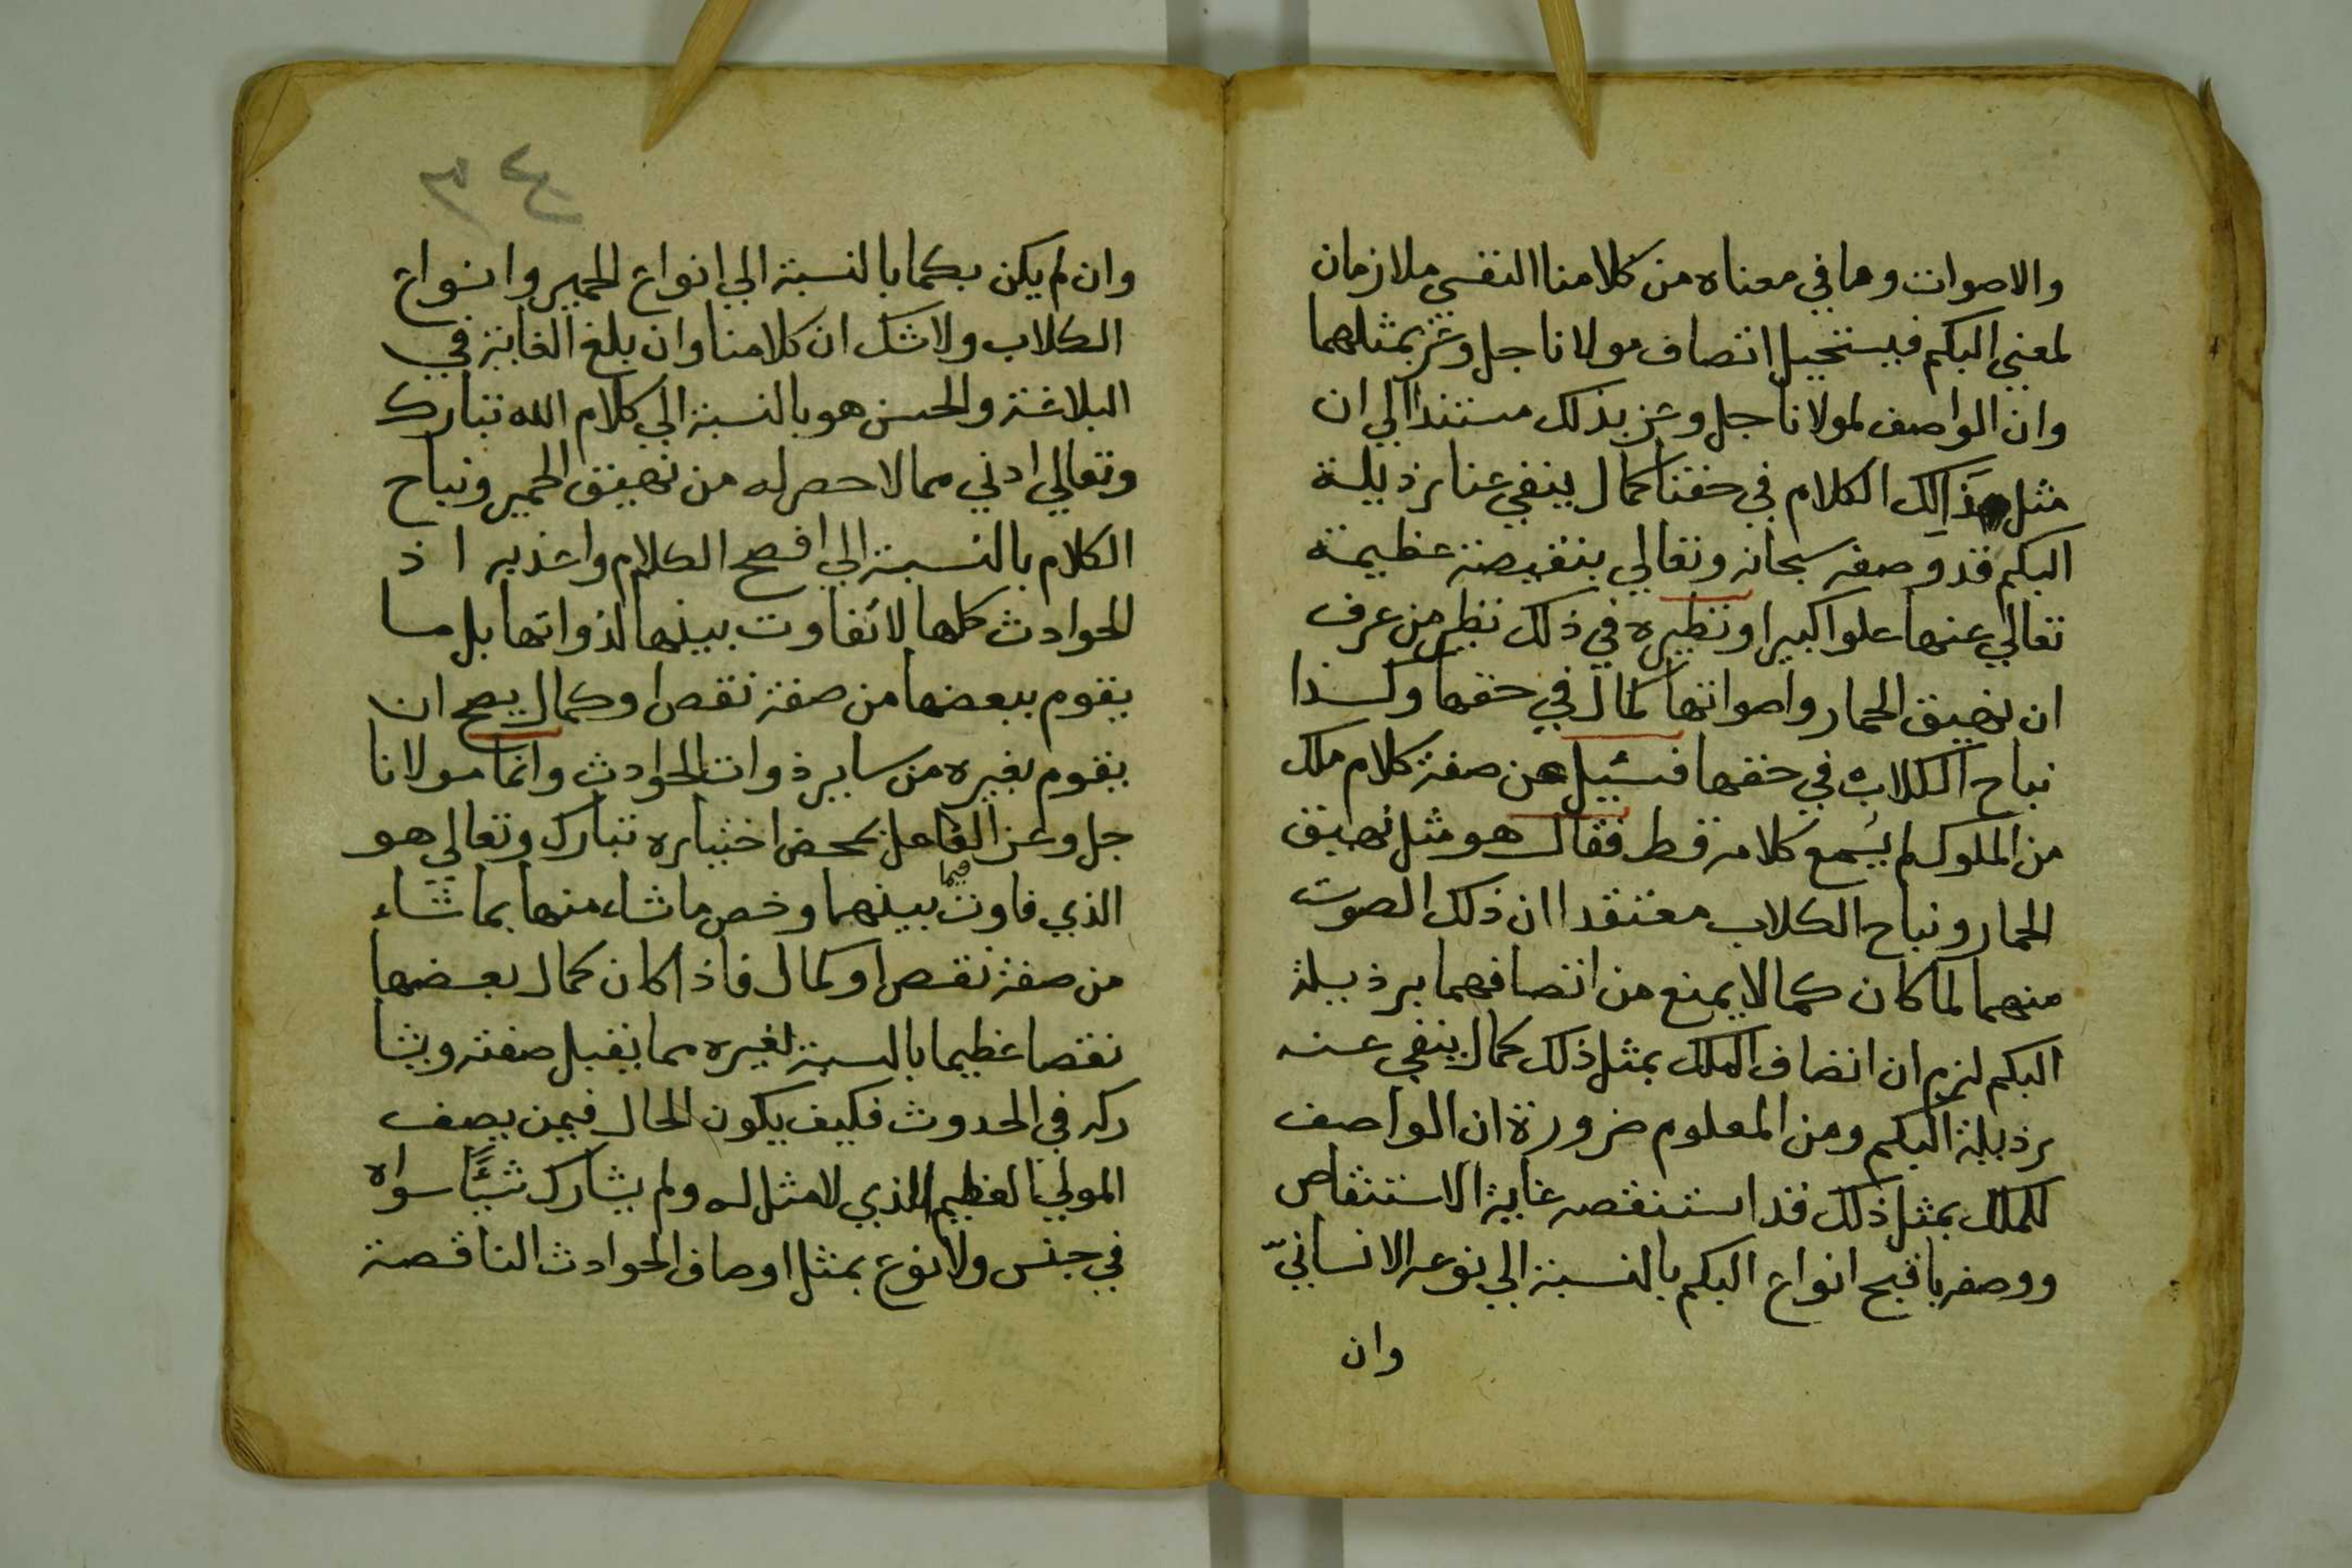 والاصوات وما في معناه من كلامنا النفسي ملازمان
لمعني البكم فيستحيل اتصاف مولانا جل وعز بمثلهما
وان الواصف لمولانا جل وعز بذلك مستندا الي ان
مثل ذالك الكلام في حقنا كمال ينفي عنا رذيلة
البكم قد وصفه سبحانه وتعالي بنقيصة عظيمة
تعالي عنها علوا كبيرا ونظيره في ذلك نظير من عرف
ان نهيق الحمار واصواتها كمال في حقها وكذا
نباح الكلاب في حقها فسئيل عن صفة كلام ملك
من الملوك لم يسمع كلامه قط فقال هو مثل نهيق
الحمار ونباح الكلاب معتقدا ان ذلك الصوت
منهما لما كان كمالا يمنع من اتصافهما برذيلة
البكم لزم ان اتصاف الملك بمثل ذلك كمال ينفي عنه
رذيلة البكم ومن المعلوم ضرورة ان الواصف
للملك بمثل ذلك قد استنقصه غاية الاستنقاص
ووصفه باقبح انواع البكم بالنسبة الي نوعه الانسانيّ
وان
٤٣
وان لم يكن بكما بالنسبة الي انواع الحمير وانواع
الكلاب ولا شك ان كلامنا وان بلغ الغاية في
البلاغة والحسن هو بالنسبة الي كلام الله تبارك
وتعالي ادني مما لا حصر له من نهيق الحمير ونباح
الكلام بالنسبة الي افصح الكلام واعذبه اذ
الحوادث كلها لا تفاوت بينها لذواتها بل ما
يقوم ببعضها من صفة نقص او كمال يصح ان
يقوم بغيره من ساير ذوات الحوادث وانما مولانا
جل وعز الفاعل بمحض اختياره تبارك وتعالي هو
الذي فاوت فيما بينهما وخص ما شاء منها بما شاء
من صفة نقص او كمال فاذا كان كمال بعضها
نقصا عظيما بالنسبة لغيره مما يقبل صفته ويشا
ركه في الحدوث فكيف يكون الحال فيمن يصف
المولي العظيم الذي لا مثل له ولم يشارك شيئًا سواه
في جنس ولا نوع بمثل اوصاف الحوادث الناقصة